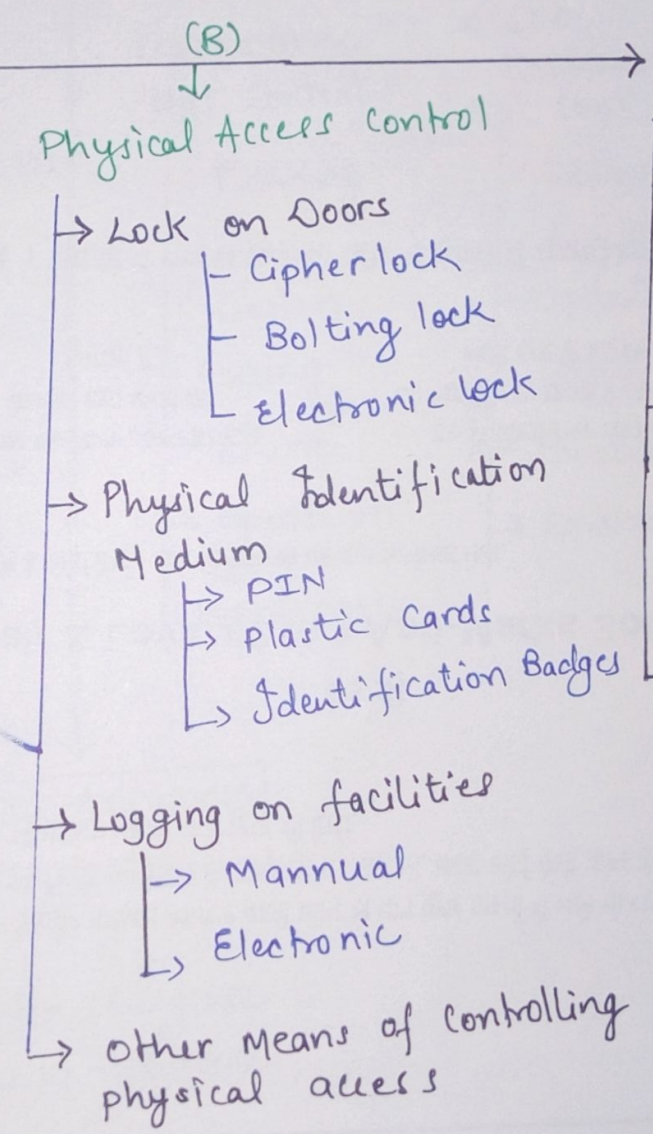 (B)
Physical Access Control
Lock on Doors
Cipher lock
Bolting lock
Electronic lock
Physical Identification
Medium
PIN
Plastic Cards
Identification Badges
Logging on facilities
Mannual
Electronic
Other Means of Controlling
physical access